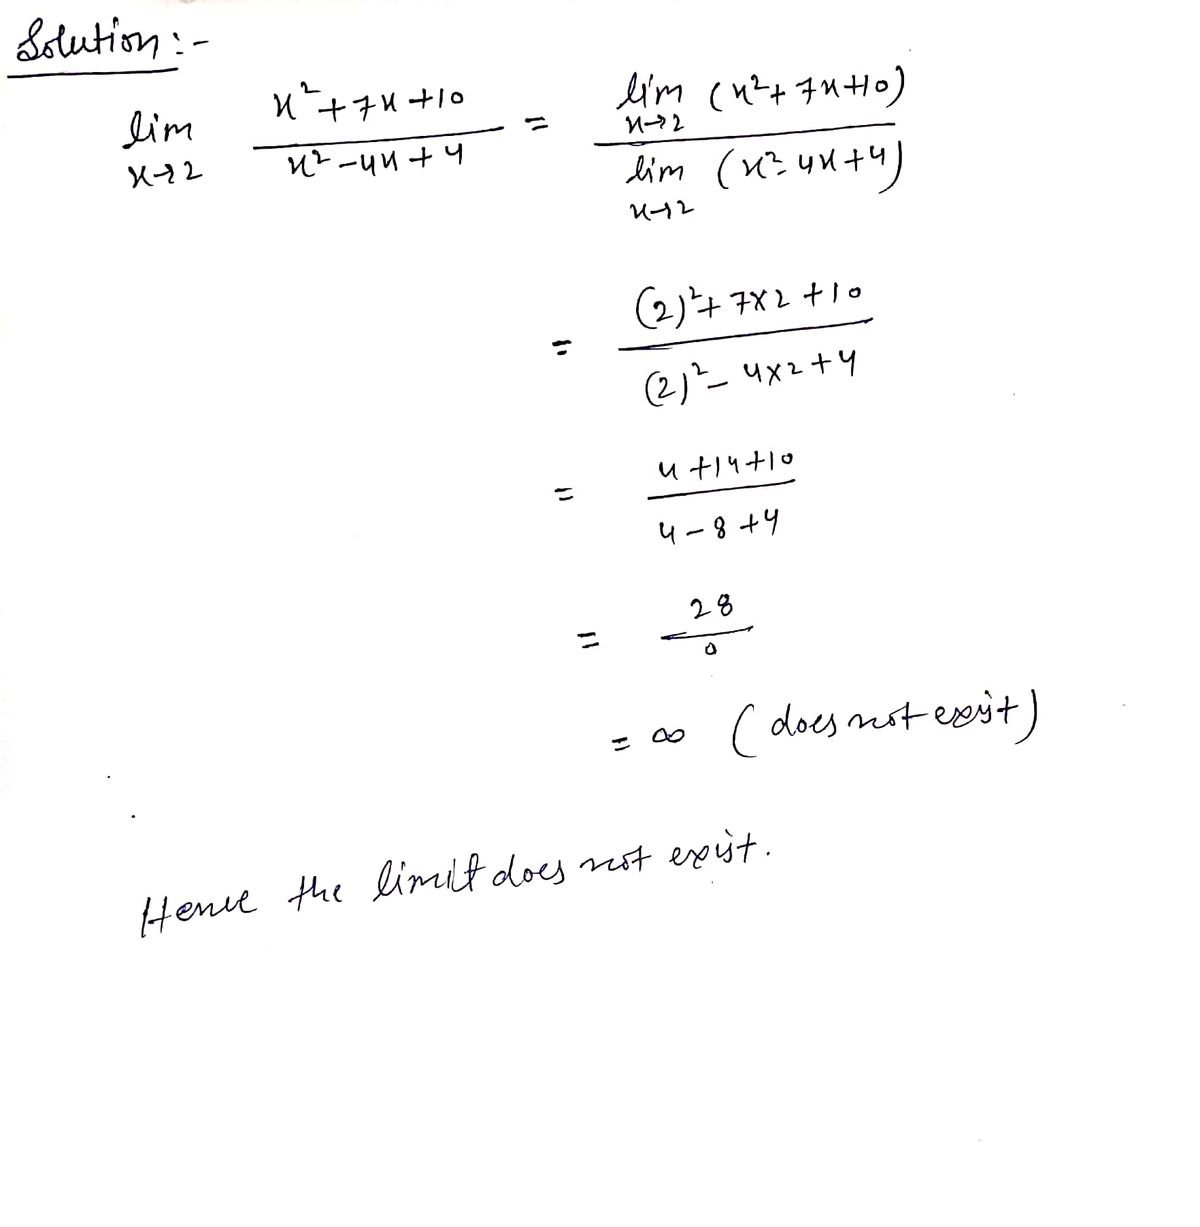 Solution :-
lim x→2 (x² + 7x + 10)/(x² - 4x + 4) = lim x→2 (x² + 7x + 10) / lim x→2 (x² - 4x + 4)
= ((2)² + 7×2 + 10)/((2)² - 4×2 + 4)
= (4 + 14 + 10)/(4 - 8 + 4)
= 28/0
= ∞ (does not exist)
Hence the limit does not exist.